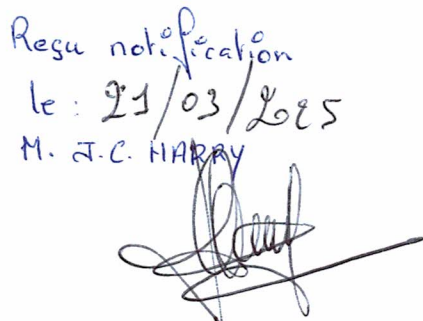 Reçu notification
le : 21/03/2025
M. J.C. HARRY